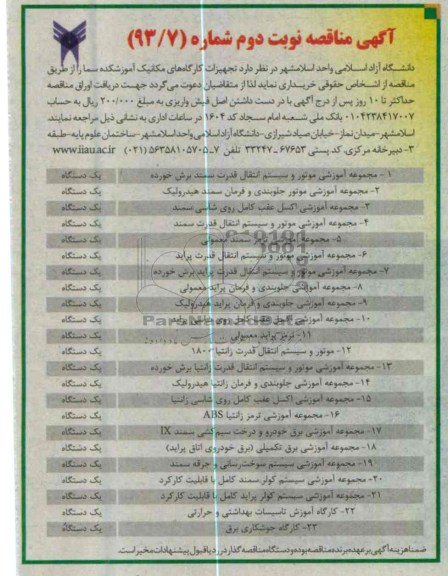 آگهی مناقصه نوبت دوم شماره (۹۳/۷)
دانشگاه آزاد اسلامی واحد اسلامشهر در نظر دارد تجهیزات کارگاه‌های مکانیک آموزشکده سما را از طریق
مناقصه از اشخاص حقوقی خریداری نماید لذا از متقاضیان دعوت می‌گردد جهت دریافت اوراق مناقصه
حداکثر تا ۱۰ روز پس از درج آگهی با در دست داشتن اصل فیش واریزی به مبلغ ۲۰۰/۰۰۰ ریال به حساب
۰۱۰۴۲۳۸۴۱۷۰۰۷ بانک ملی شعبه امام سجاد کد ۱۶۰۴ در ساعات اداری به نشانی ذیل مراجعه نمایند.
اسلامشهر-میدان نماز-خیابان صیاد شیرازی-دانشگاه آزاد اسلامی واحد اسلامشهر-ساختمان علوم پایه-طبقه
۳-دبیرخانه مرکزی. کد پستی ۶۷۶۵۳-۳۳۱۴۷ تلفن ۷-۵۶۳۵۸۱۰۵ (۰۲۱) www.iiau.ac.ir
۱- مجموعه آموزشی موتور و سیستم انتقال قدرت سمند برش خورده یک دستگاه
۲- مجموعه آموزشی موتور جلوبندی و فرمان سمند هیدرولیک یک دستگاه
۳- مجموعه آموزشی اکسل عقب کامل روی شاسی سمند یک دستگاه
۴- مجموعه آموزشی موتور و سیستم انتقال قدرت سمند یک دستگاه
۵- مجموعه آموزشی ترمز سمند معمولی یک دستگاه
۶- مجموعه آموزشی موتور و سیستم انتقال قدرت پراید یک دستگاه
۷- مجموعه آموزشی موتور و سیستم انتقال قدرت پراید برش خورده یک دستگاه
۸- مجموعه آموزشی جلوبندی و فرمان پراید معمولی یک دستگاه
۹- مجموعه آموزشی جلوبندی و فرمان پراید هیدرولیک یک دستگاه
۱۰- مجموعه آموزشی اکسل عقب کامل روی شاسی پراید یک دستگاه
۱۱- ترمز پراید معمولی یک دستگاه
۱۲- موتور و سیستم انتقال قدرت زانتیا ۱۸۰۰ یک دستگاه
۱۳- مجموعه آموزشی موتور و سیستم انتقال قدرت زانتیا برش خورده یک دستگاه
۱۴- مجموعه آموزشی جلوبندی و فرمان زانتیا هیدرولیک یک دستگاه
۱۵- مجموعه آموزشی اکسل عقب کامل روی شاسی زانتیا یک دستگاه
۱۶- مجموعه آموزشی ترمز زانتیا ABS یک دستگاه
۱۷- مجموعه آموزشی برق خودرو و درخت سیم کشی سمند lX یک دستگاه
۱۸- مجموعه آموزشی برق تکمیلی (برق خودروی اتاق پراید) یک دستگاه
۱۹- مجموعه آموزشی سیستم سوخت‌رسانی و جرقه سمند یک دستگاه
۲۰- مجموعه آموزشی سیستم کولر سمند کامل با قابلیت کارکرد یک دستگاه
۲۱- مجموعه آموزشی سیستم کولر پراید کامل با قابلیت کارکرد یک دستگاه
۲۲- کارگاه آموزش تاسیسات بهداشتی و حرارتی یک دستگاه
۲۳- کارگاه جوشکاری برق یک دستگاه
ضمناً هزینه آگهی بر عهده برنده مناقصه بوده و دستگاه مناقصه گذار در رد یا قبول پیشنهادات مخیر است.